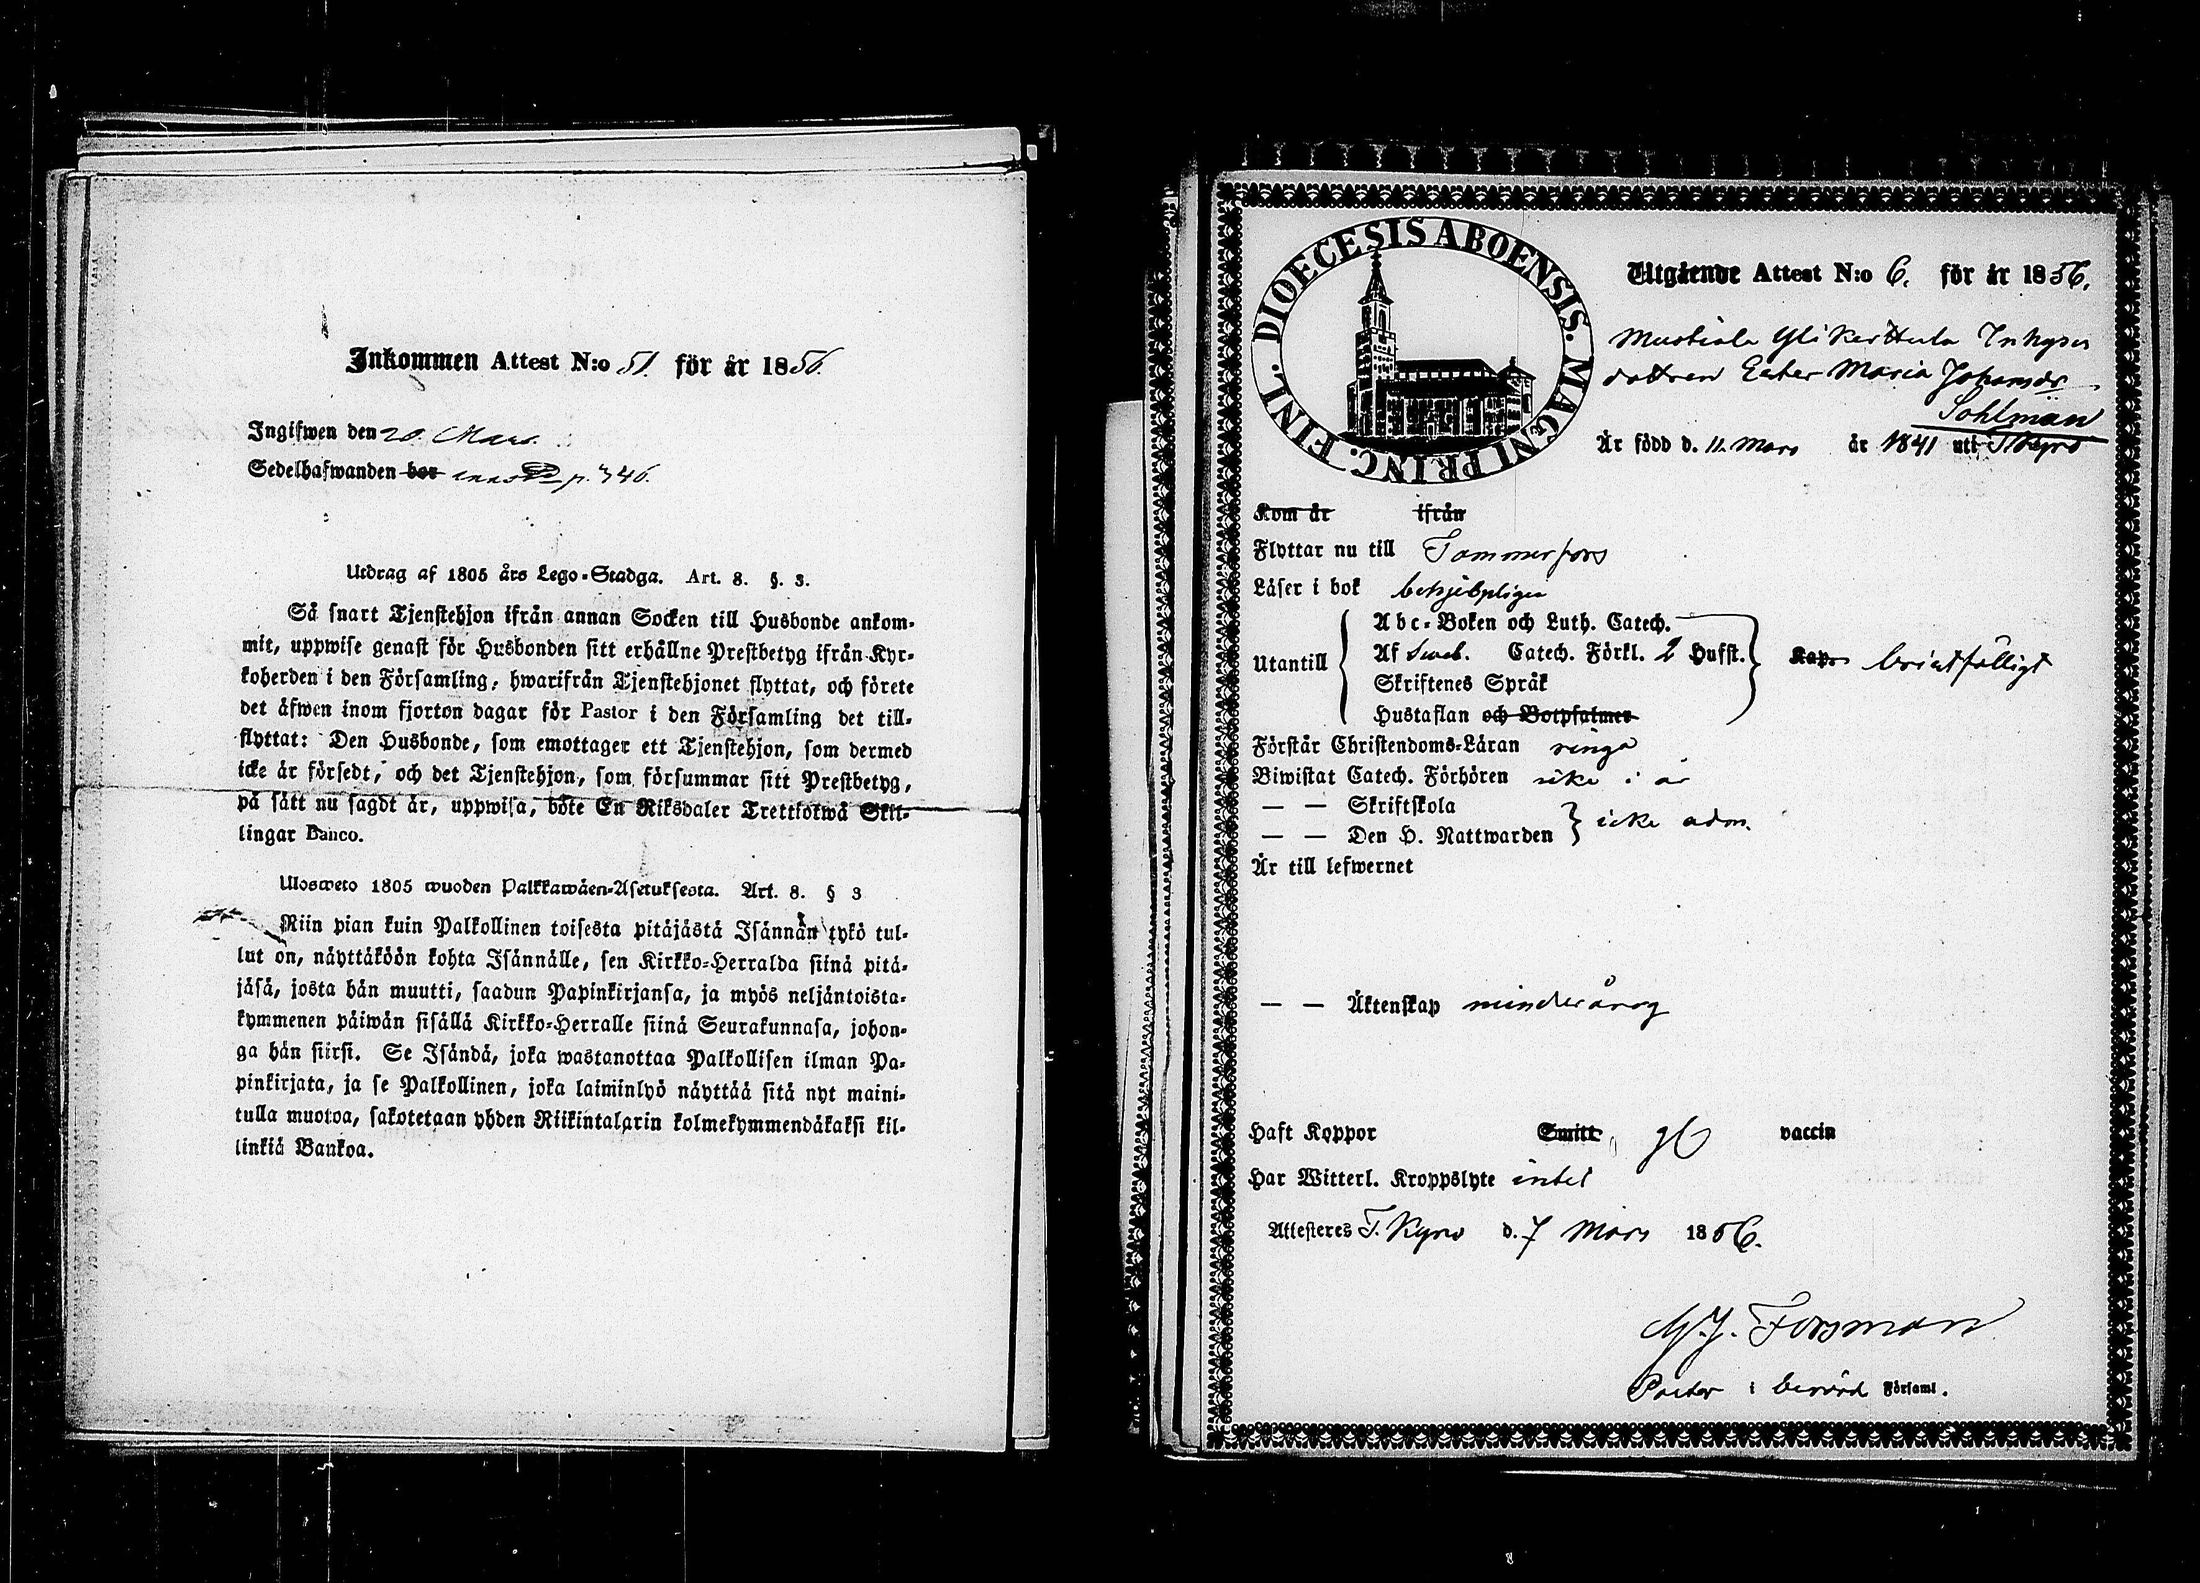 Inkommen Attest N:o 51. för år 1856.
Ingifwen den 20. Mars.
Sedelhafwanden bor p. 346.
Utdrag af 1805 års Lego-Stadga. Art. 8. §. 3.
Så snart Tjenstehjon ifrån annan Socken till Husbonde ankom-
mit, uppwise genast för Husbonden sitt erhållne Prestbetyg ifrån Kyr-
koherden i den Församling, hwarifrån Tjenstehjonet flyttat, och förete
det äfwen inom fjorton dagar för Pastor i den Församling det till-
flyttat: Den Husbonde, som emottager ett Tjenstehjon, som dermed
icke är försedt, och det Tjenstehjon, som försummar sitt Prestbetyg,
på sätt nu sagdt är, uppwisa, böte En Riksdaler Trettiotwå Skil-
lingar Banco.
Ulosweto 1805 wuoden Palkkawäen-Asetuksesta. Art. 8. § 3
Niin pian kuin Palkollinen toisesta pitäjästä Isännän tykö tul-
lut on, näyttäköön kohta Isännälle, sen Kirkko-Herralda siinä pitä-
jäsä, josta hän muutti, saadun Papinkirjansa, ja myös neljäntoista-
kymmenen päiwän sisällä Kirkko-Herralle siinä Seurakunnasa, johon-
ga hän siirsi. Se Isändä, joka wastanottaa Palkollisen ilman Pa-
pinkirjata, ja se Palkollinen, joka laiminlyö näyttää sitä nyt maini-
tulla muotoa, sakotetaan yhden Riikintalarin kolmekymmendäkaksi kil-
linkiä Bankoa.
DIOECESIS ABOENSIS. MAGNI PRINC. FINL.
Utgående Attest N:o 6. för år 1856.
Mustiala Yli Kerttula Inhyses
dottren Ester Maria Johansdr
Sohlman
Är född d. 11. Mars år 1841 uti T Kyro
Kom år ifrån
Flyttar nu till Tammerfors
Läser i bok behjelpligen
Utantill
Abc-Boken och Luth. Catech.
Af Sveb. Catech. Förkl. 2 Hufst.
Skriftenes Språk
Hustaflan och Botpsalmer
Kap. bristfälligt
Förstår Christendoms-Läran ringa
Biwistat Catech. Förhören icke i år
— — Skriftskola
— — Den H. Nattwarden } icke adm.
Är till lefwernet
— — Äktenskap minderårig
Haft Koppor Smitt vaccin
Har Witterl. Kroppslyte intet
Attesteres T. Kyro d. 7 Mars 1856.
Forsman
Pastor i berörd Församl.